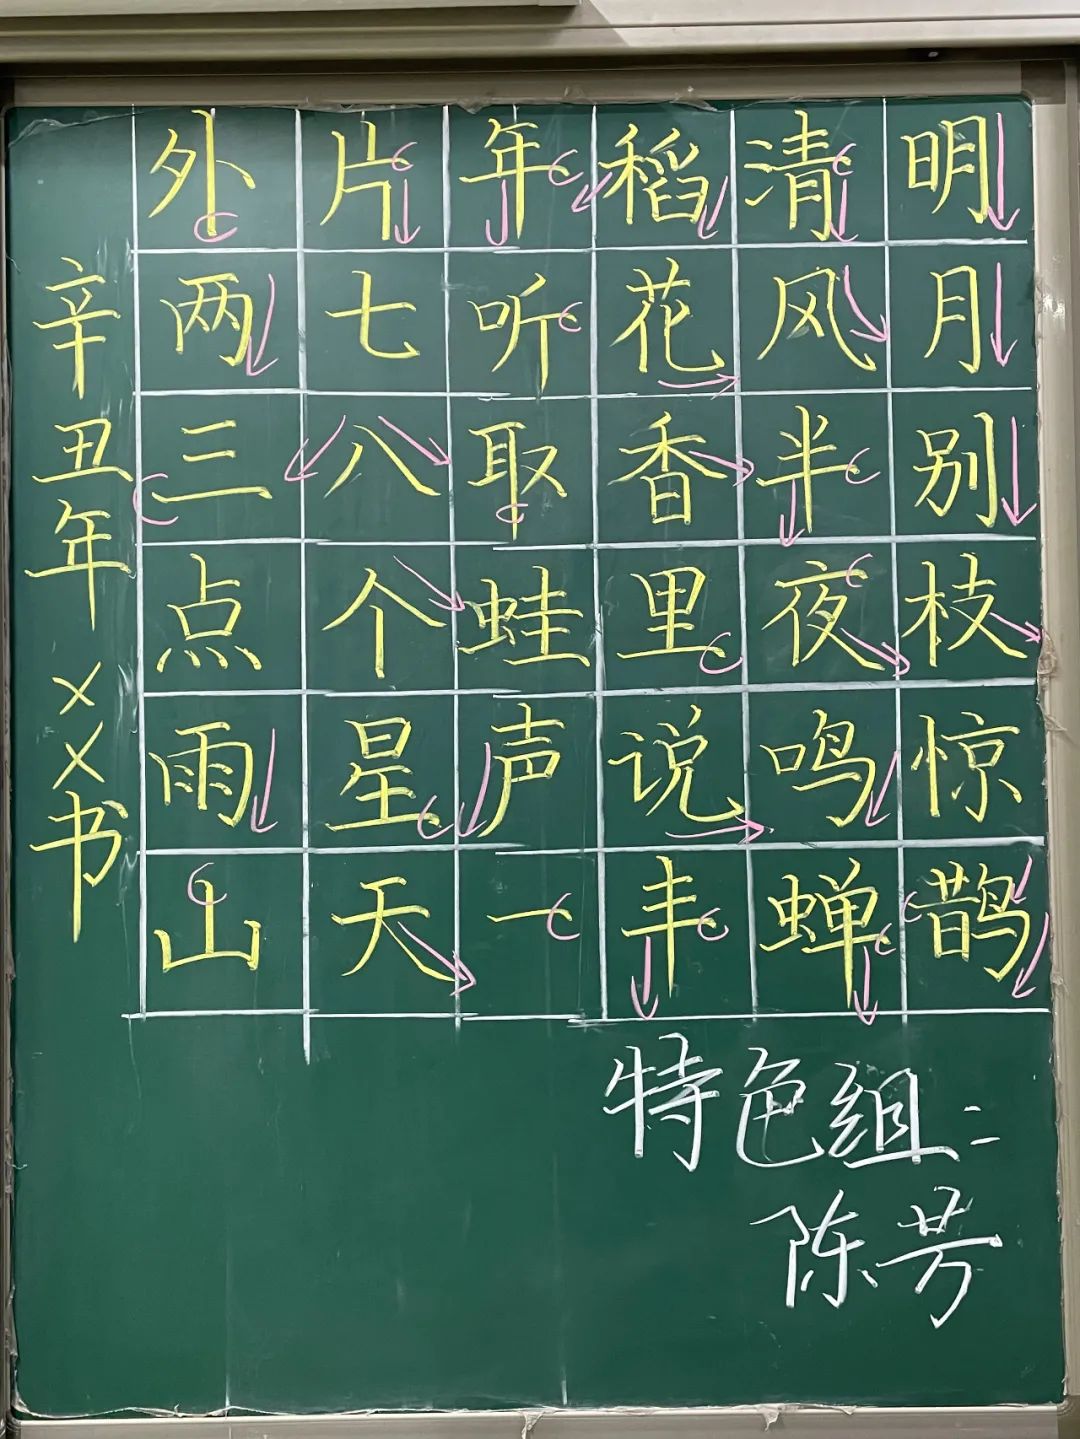 明月别枝惊鹊
清风半夜鸣蝉
稻花香里说丰
年听取蛙声一
片七八个星天
外两三点雨山
辛丑年××书
特色组：
陈芳